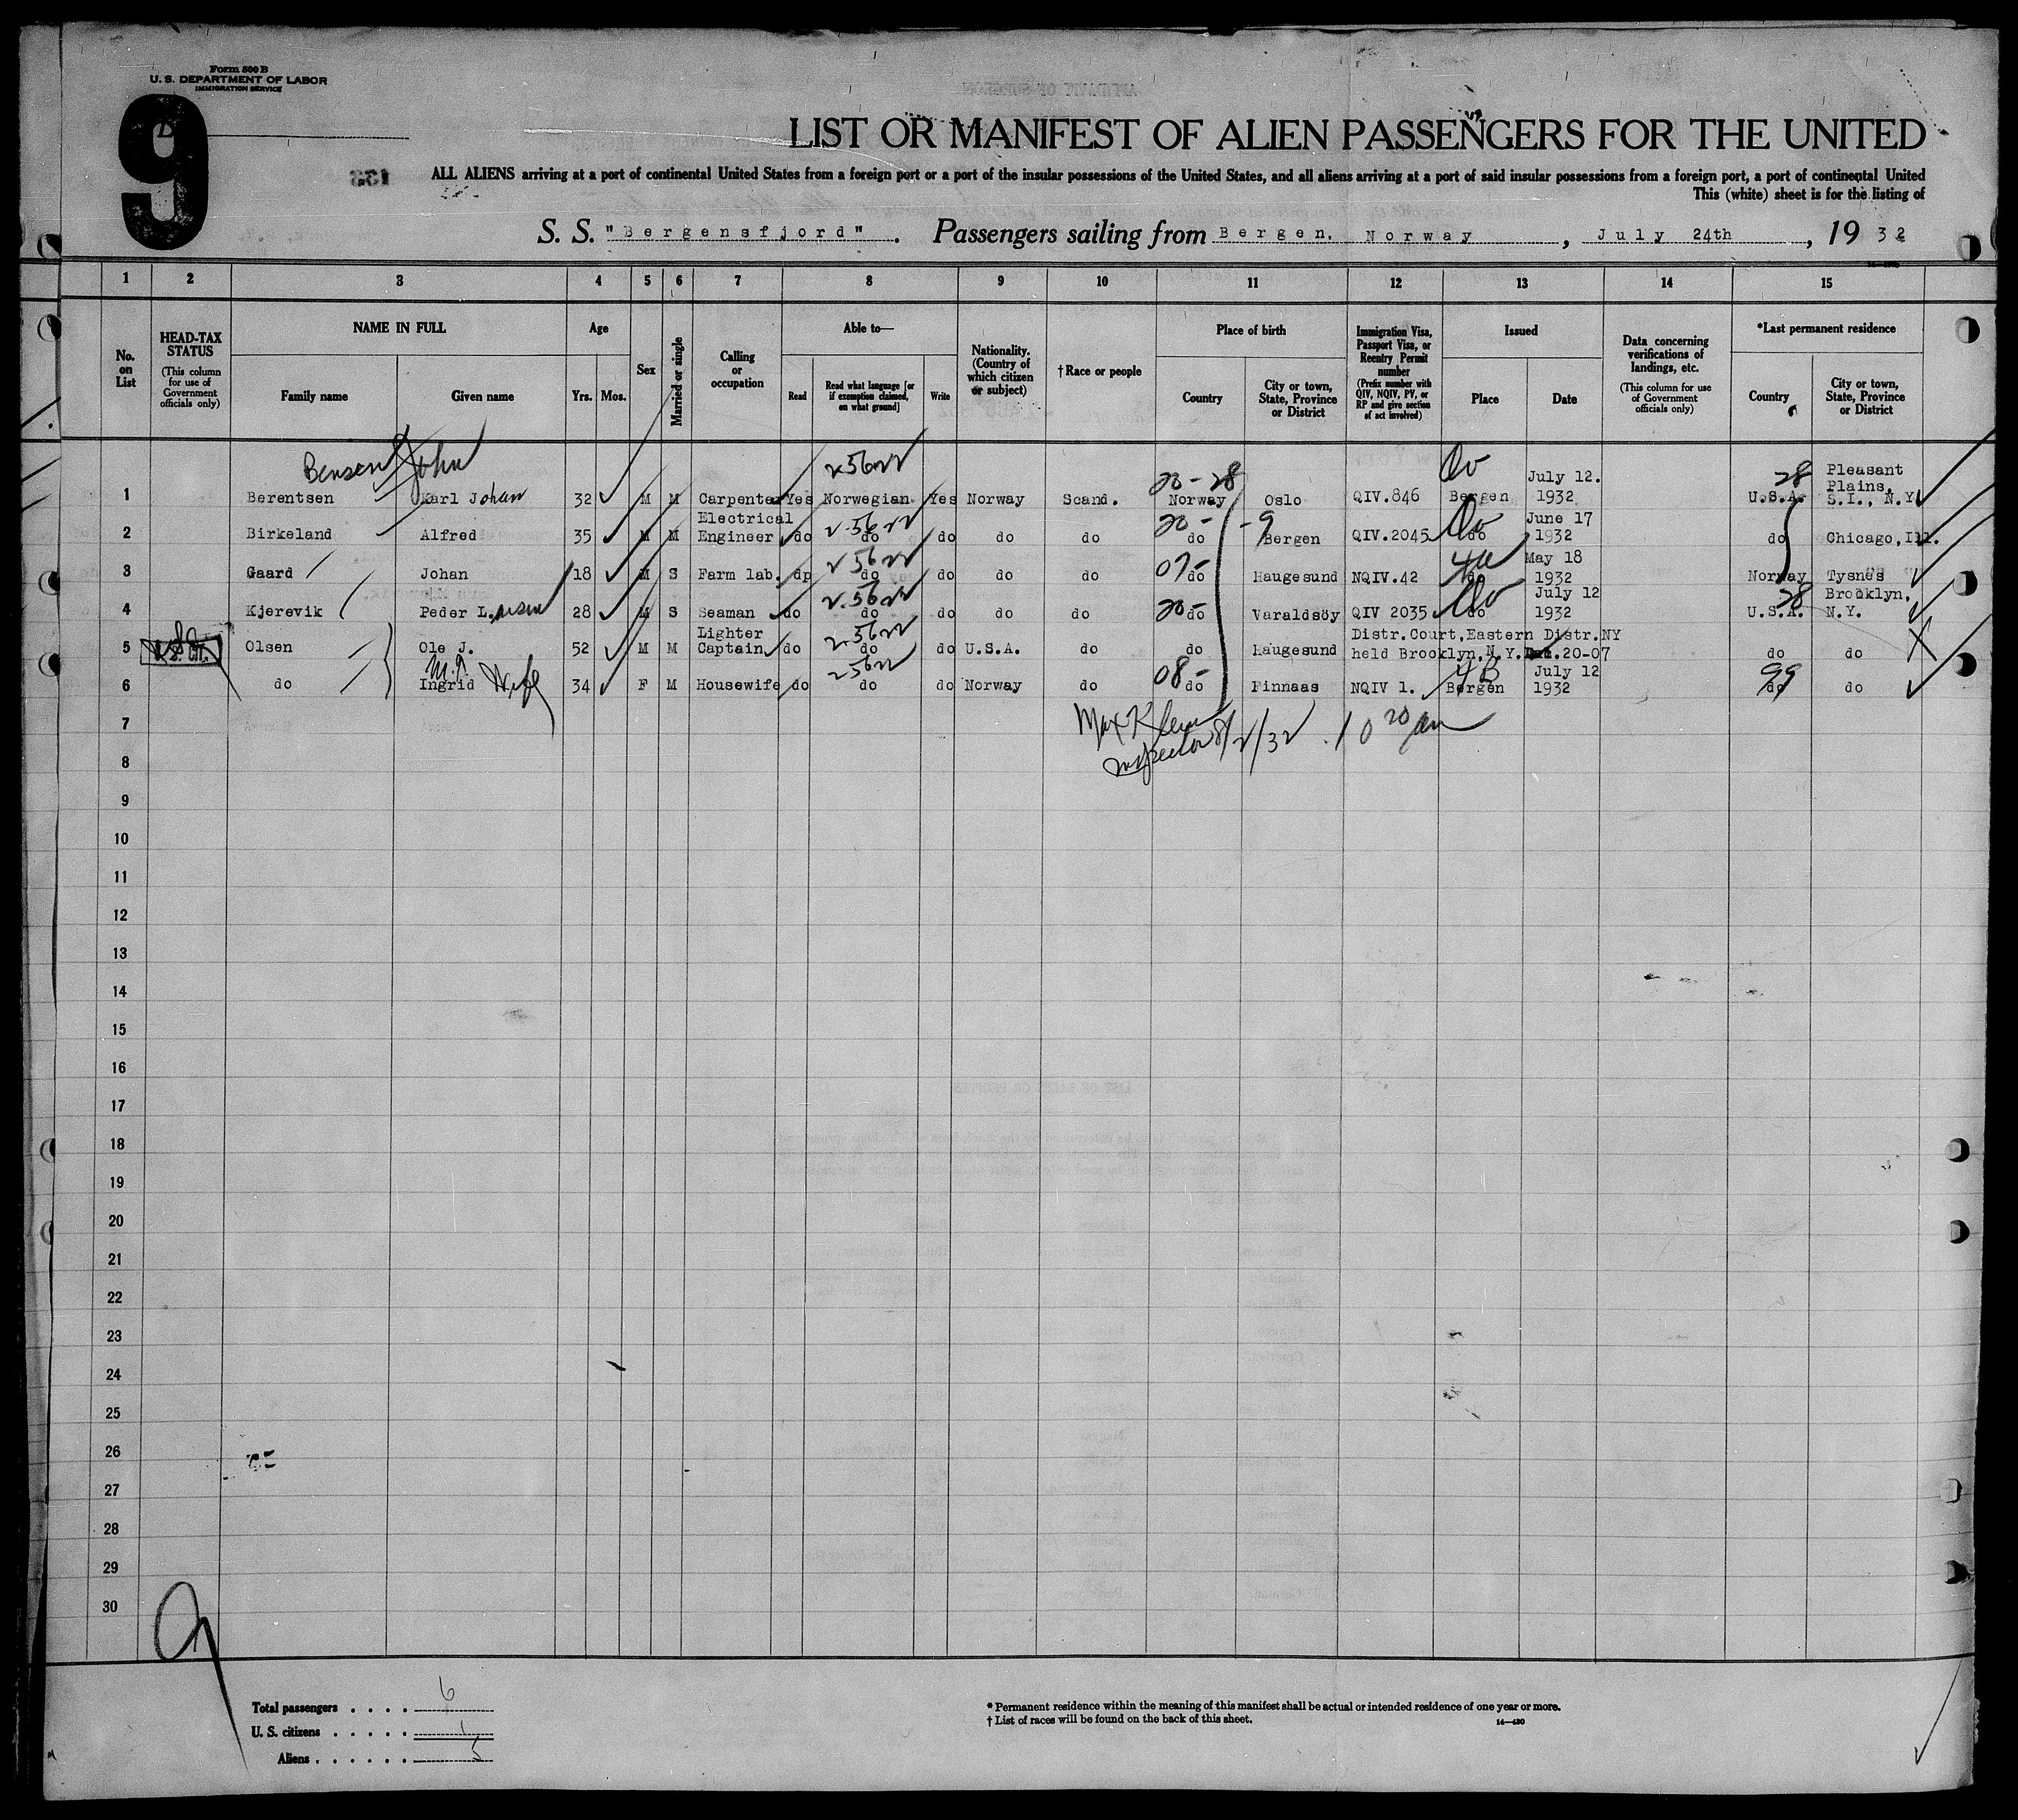 Form 500 B
U. S. DEPARTMENT OF LABOR
IMMIGRATION SERVICE
9
LIST OR MANIFEST OF ALIEN PASSENGERS FOR THE UNITED
ALL ALIENS arriving at a port of continental United States from a foreign port or a part of the insular possessions of the United States, and all aliens arriving at a port of said insular possessions from a foreign port, a port of continental United
This (white) sheet is for the listing of
S. S. "Bergensfjord". Passengers sailing from Bergen. Norway, July 24th, 1932
1 2 3 4 5 6 7 8 9 10 11 12 13 14 15
No. on List
HEAD-TAX STATUS (This column for use of Government officials only)
NAME IN FULL Family name Given name
Age Yrs. Mos.
Sex
Married or single
Calling or occupation
Able to— Read Read what language [or if exemption claimed, on what ground] Write
Nationality. (Country of which citizen or subject)
† Race or people
Place of birth Country City or town, State, Province or District
Immigration Visa, Passport Visa, or Reentry Permit number (Prefix number with QIV, NQIV, PV, or RP and give section of act involved)
Issued Place Date
Data concerning verifications of landings, etc. (This column for use of Government officials only)
*Last permanent residence Country City or town, State, Province or District
Bensen John 25622 20-28 28
1 Berentsen Karl Johan 32 M M Carpenter Yes Norwegian Yes Norway Scand. Norway Oslo QIV.846 Bergen July 12. 1932 U.S.A. Pleasant Plains, S.I., N.Y.
2.5622 20- -9
2 Birkeland Alfred 35 M M Electrical Engineer do do do do do do Bergen QIV.2045 do June 17 1932 do Chicago, Ill.
25622 07- 4a
3 Gaard Johan 18 M S Farm lab. dp do do do do do Haugesund NQIV.42 do May 18 1932 Norway Tysnes
2.5622 20- 28
4 Kjerevik Peder L.arsen 28 M S Seaman do do do do do do Varaldsöy QIV 2035 do July 12 1932 U.S.A. Brooklyn, N.Y.
25622
5 Olsen Ole J. 52 M M Lighter Captain do do do U.S.A. do do Haugesund Distr.Court,Eastern Distr.NY held Brooklyn,N.Y. 20-07 do do
25622 08- 4B 99
6 do Ingrid Wife 34 F M Housewife do do do Norway do do Finnaas NQIV 1. Bergen July 12 1932 do do
7 Max Klein
Inspector 8/2/32 10 20 am
8
9
10
11
12
13
14
15
16
17
18
19
20
21
22
23
24
25
26
27
28
29
30
9
Total passengers . . . . 6
U. S. citizens . . . . . 1
Aliens . . . . . . 5
* Permanent residence within the meaning of this manifest shall be actual or intended residence of one year or more.
† List of races will be found on the back of this sheet.
14—430